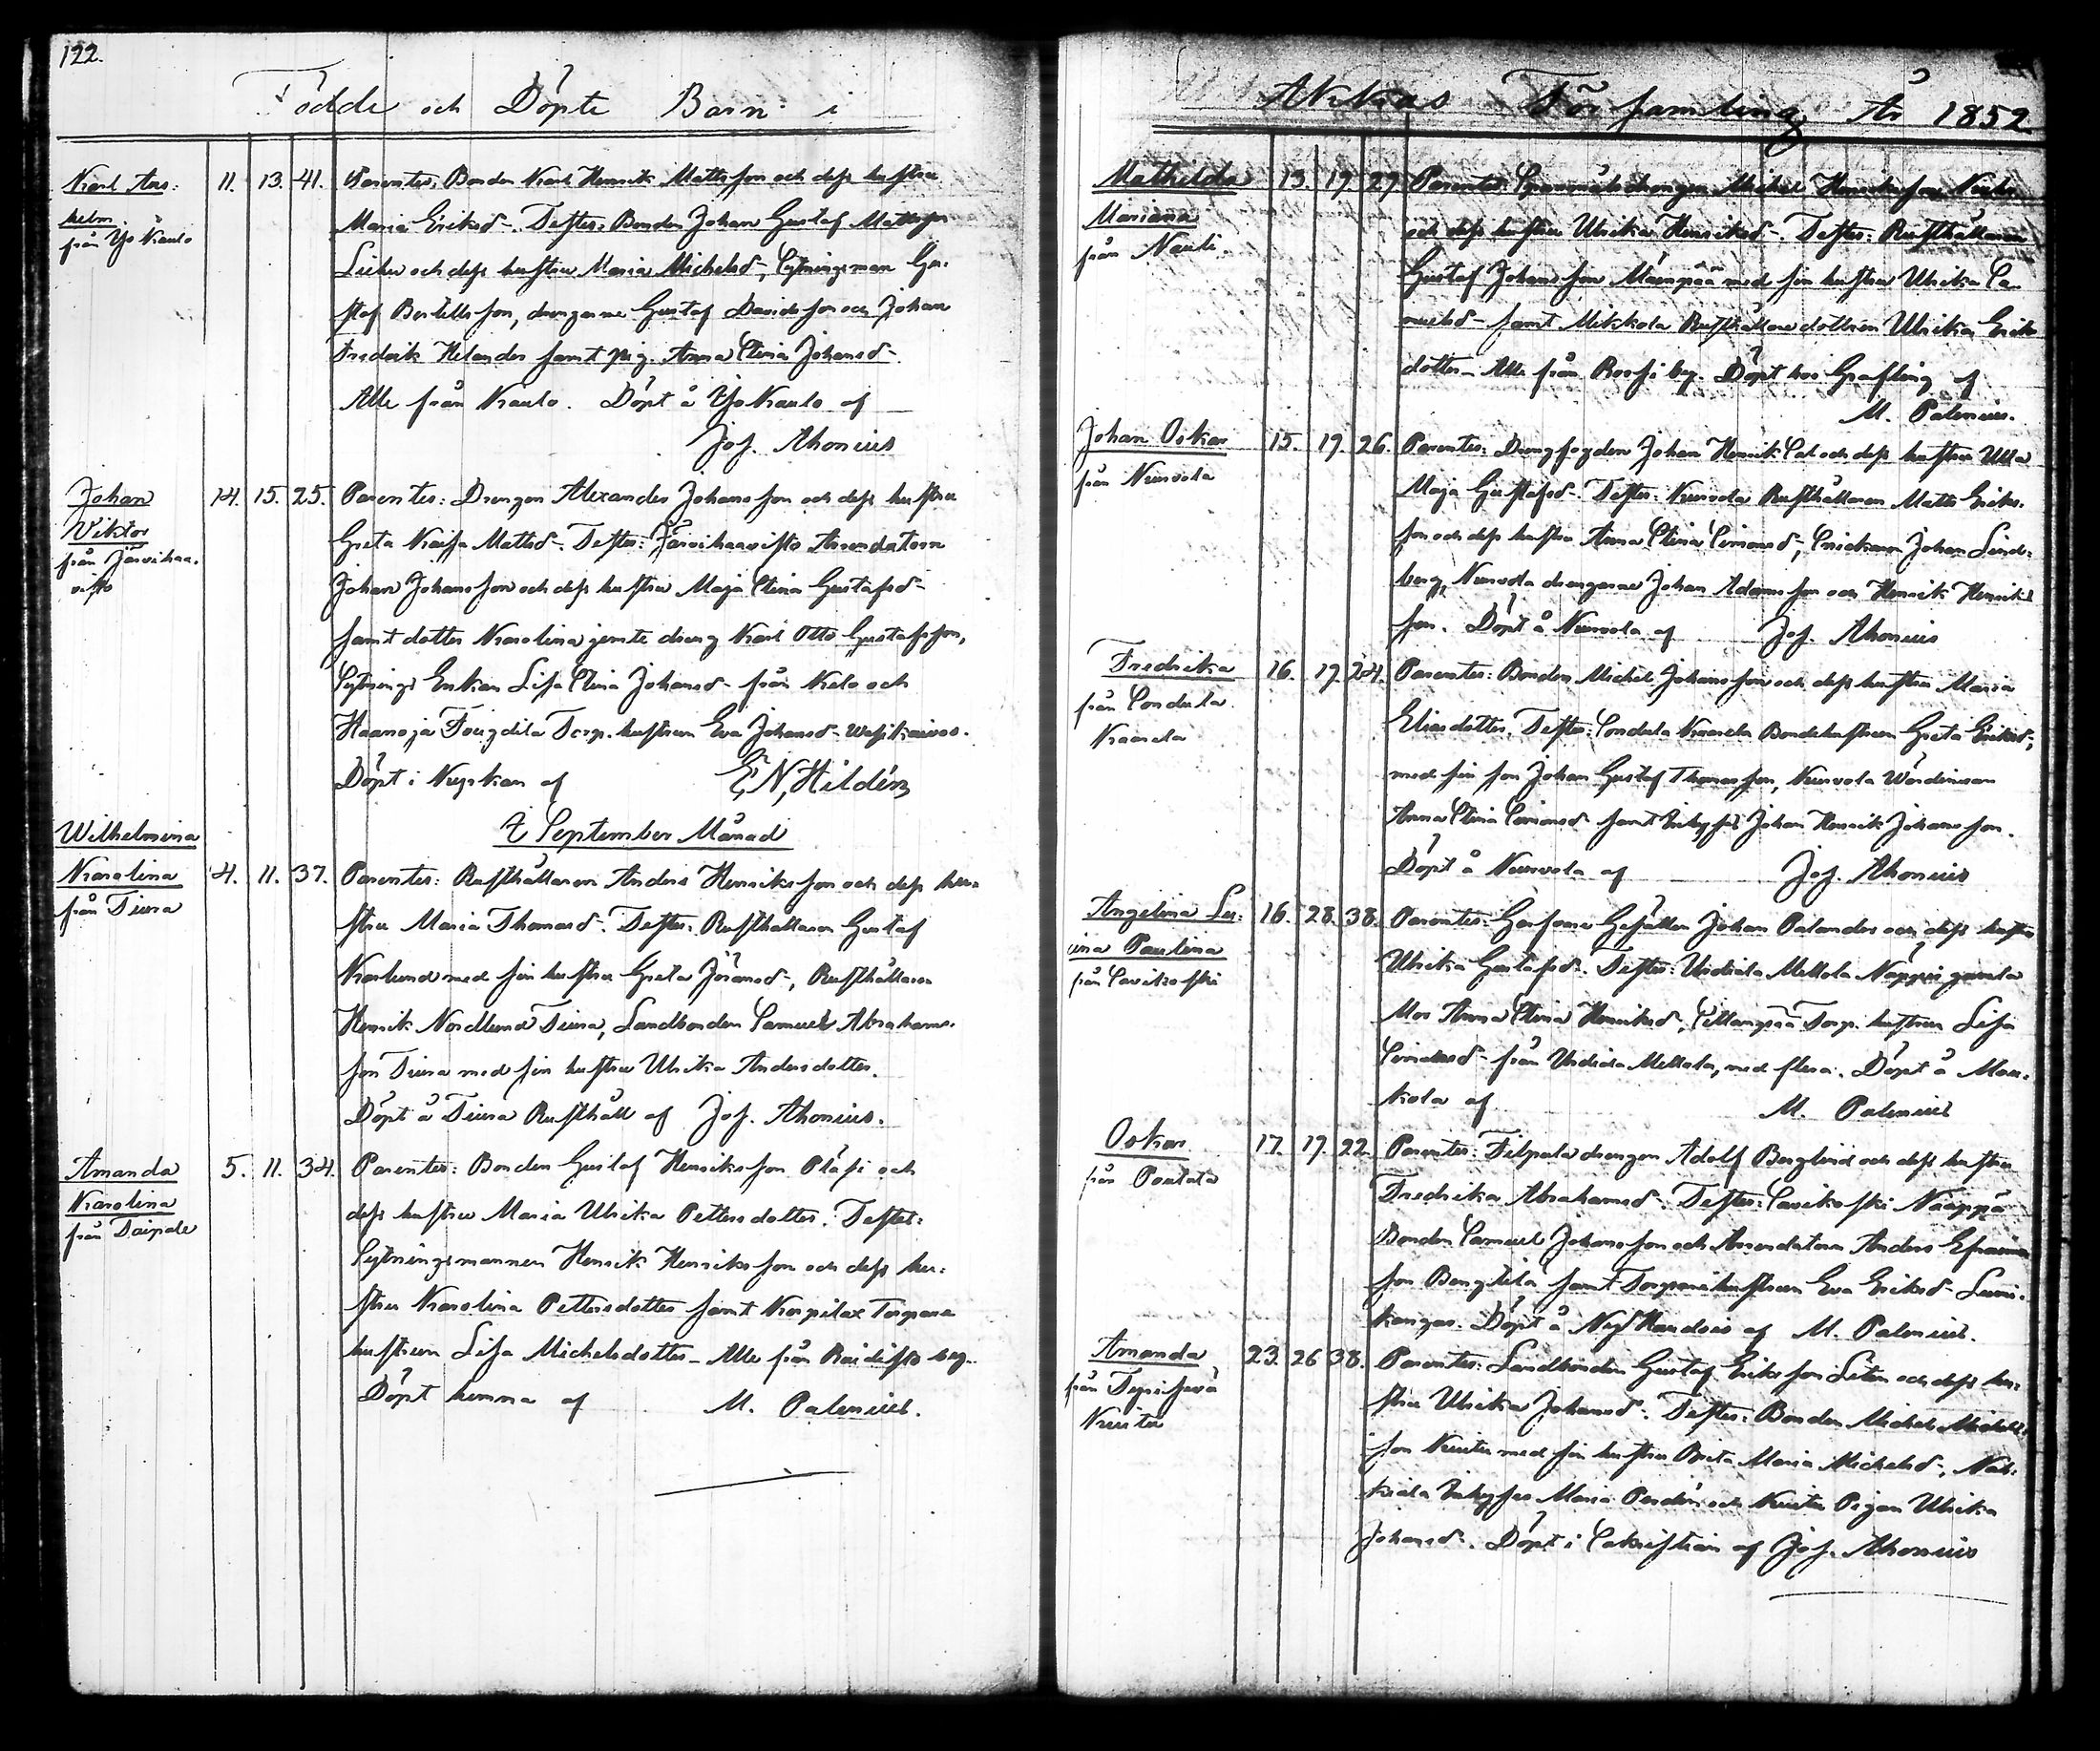 122.
Födde och Döpte Barn i
Karl Ans:
helm
från Yso Kaulo
11. 13. 41. Parentes: Bonden Karl Henrik Mattsson och dess hustru
Maria Eriksd-. Testes: Bonden Johan Gustaf Mattsson
och dess hustru Maria Michelsd-, Sytningsman Gu-
staf Bertilsson, drengarne Gustaf Davidsson och Johan
Fredrik Helander samt pig. Anna Stina Johansd-
Alle från Kaulo. Döpt å Yso Kaulo af
Jos. Ahonius
Johan
Viktor
från Järvikaa-
visto
14. 15. 25. Parentes: Drengen Alexander Johansson och dess hustru
Greta Kaisa Mattsd-. Testes: Arendatorn
Johan Johansson och dess hustru Maja Stina Gustafsd-
samt dotter Karolina jemte dreng Karl Otto Gustafsson,
Sytnings Enkan Lisa Stina Johansd- från Kelo och
Torp. hustrun Eva Johansd-
Döpt i Kyrkan af E, N, Hildén
September Månad
Wilhelmina
Karolina
från Tiura
4. 11. 37. Parentes: Rusthållaren Anders Henriksson och dess hu-
stru Maria Thomasd-. Testes: Rusthållaren Gustaf
Karlund med sin hustru Greta Jöransd-, Rusthållaren
Henrik Nordlund Tiura, Landbonden Samuel Abrahams-
son Tiura med sin hustru Ulrika Andersdotter.
Döpt å Tiura Rusthåll af Jos. Ahonius.
Amanda
Karolina
från Taipale
5. 11. 34. Parentes: Bonden Gustaf Henriksson och
dess hustru Maria Ulrika Pettersdotter. Testes:
Sytningsmannen Henrik Henriksson och dess hu-
stru Karolina Pettersdotter samt Torpare
hustrun Lisa Michelsdotter - Alle från
Döpt hemma af M. Palenius.
Akkas Församling År 1852
Mathilda
Mariana
från Nauli.
13. 19. 29. Parentes: Michel Henriksson
och dess hustru Ulrika Henriksd-. Testes: Rusthållaren
Gustaf Johansson Mäenpää med sin hustru Ulrika Sa-
muelsd- samt Mikkola Rusthållare dottren Ulrika Eriks
dotter - Alle från by. Döpt hos af
M. Palenius.
Johan Oskar
från Kurvola
15. 19. 26. Parentes: Drengfogden Johan Henrik och dess hustru Ulla
Maja Gustafsd-. Testes: Kurvola Rusthållaren Matts Eriks-
son och dess hustru Anna Stina Simonsd-, Snickaren Johan Lind-
berg, Kurvola drengarne Johan Adamsson och Henrik Henriks
son. Döpt å Kurvola af Jos. Ahonius
Fredrika
från Sondula
Kaarela
16. 19. 24. Parentes: Bonden Michel Johansson och dess hustru Maria
Eliasdotter. Testes: Sondula Kaarela Bondehustrun Greta Eriksd-,
med sin son Johan Gustaf Thomasson, Kurvola Wärdinnan
Anna Stina Simonsd- samt Inhyses Johan Henrik Johansson.
Döpt å Kurvola af Jos. Ahonius
Angelina Lu-
ina Paulina
från Savikoski
16. 28. 38. Parentes: Garfvare Gesällen Johan Palander och dess hustru
Ulrika Gustafsd-. Testes: Uskila Mellola gamla
Mor Anna Stina Henriksd-, Torp. hustrun Lisa
från Uskila Mellola, med flera. Döpt å Mou-
kola af M. Palenius
Oskar
från Pentala
17. 19. 22. Parentes: Filpula drengen Adolf Berglind och dess hustru
Fredrika Abrahamsd-. Testes: Savikoski Näappä
Bonden Samuel Johansson och Arendatorn Anders Efraims
son samt Torparehustrun Eva Eriksd- Lumi-
kangas. Döpt å af M. Palenius.
Amanda
från
Kuurtu
23. 26 38. Parentes: Landbonden Gustaf Eriksson och dess hu-
stru Ulrika Johansd-. Testes: Bonden Michel Michels-
son med sin hustru Brita Maria Michelsd-,
Inhyses Maria och Pigan Ulrika
Johansd-. Döpt i Sakristian af Jos. Ahonius